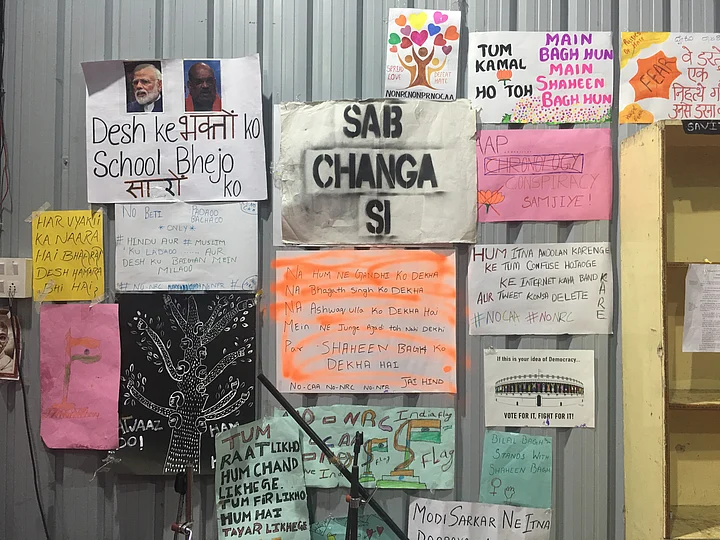 SPREAD LOVE
DEFEAT HATE
TUM
KAMAL
HO TOH
MAIN
BAGH HUN
MAIN
SHAHEEN
BAGH HUN
FEAR
वे डरते
एक
Desh ke भक्तों ko
School Bhejo
सारों ko
SAB
CHANGA
SI
AAP
CHRONOLOGY
CONSPIRACY
SAMJIYE!
HAR VYAKTI
KA NAARA
HAI BHAARAT
DESH HAMARA
BHI HAI?
NO BETI PADAOO
BACHAOO
* ONLY *
# HINDU AUR # MUSLIM
KU LADAOO ---- AUR
DESH KU
MEIN
MILAOO
#NO-NRC
NA HUM NE GANDHI KO DEKHA
NA Bhagath Singh KO DEKHA
NA Ashwaqulla KO DEKHA HAI
MEIN NE Junge Azad toh Nahi DEKHI
Par - SHAHEEN BAGH KO
DEKHA HAI
NO-CAA NO-NRC NO-NPR JAI HIND
HUM ITNA ANDOLAN KARENGE
KE TUM CONFUSE HOJAOGE
KE INTERNET KAHA BAND
KARE
AUR TWEET KONSA DELETE
#NOCAA #NONRC
If this is your idea of Democracy...
VOTE FOR IT, FIGHT FOR IT!
NO-NRC
CAA
India flag
Flag
TUM
RAAT LIKHO
HUM CHAND
LIKHEGE.
TUM FIR LIKHO
HUM HAI
TAYAR LIKHEGE
BILAL BAGH
STANDS WITH
SHAHEEN BAGH
MODI SARKAR NE ITNA